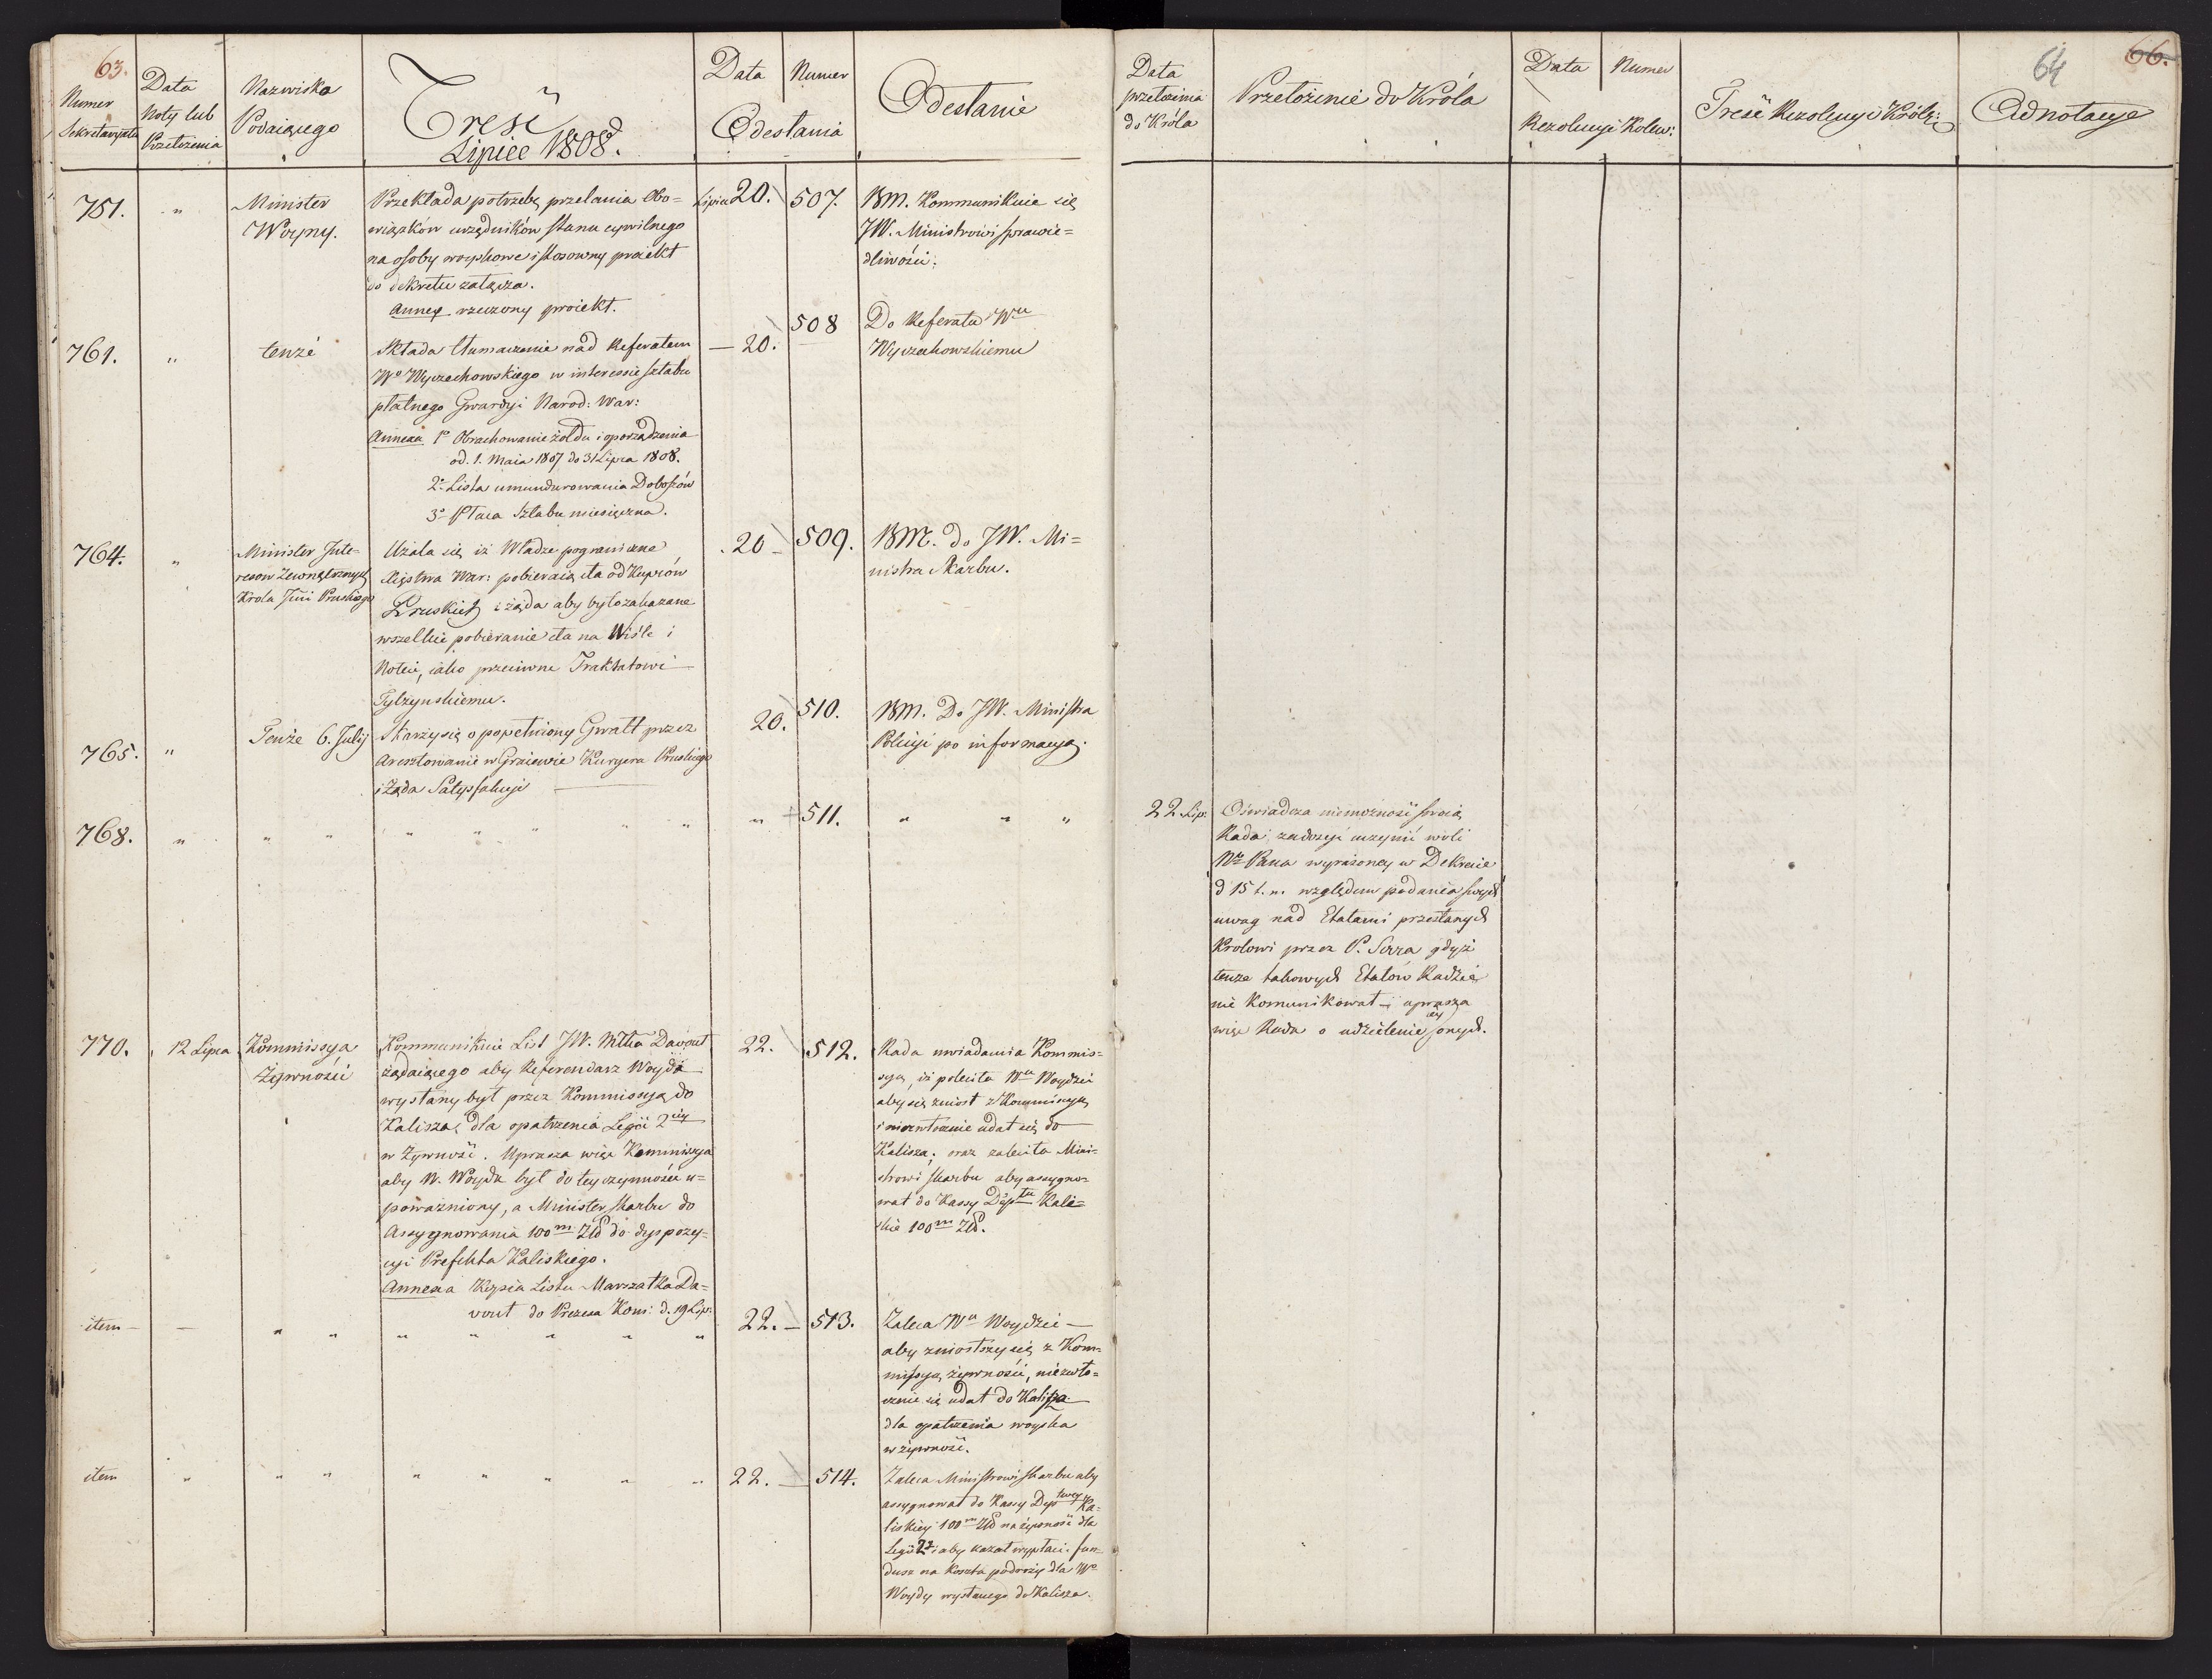 63.
Numer
Sekretaryatu
Data
Noty lub
Przełożenia
Nazwiska
Podaiącego
Treść
Lipiec 1808.
Data
Numer
Odesłania
Odesłanie
Data
przełożenia
do Króla
Przełożenie do Króla
Data
Numer
Rezolucyi Kolew:
Treść Rezolucyi Królz:
64
66.
Adnotacye
751.
"
Minister
Woyny.
Przekłada potrzebę przelania Obo=
wiązków urzędników stanu cywilnego
na osoby woyskowe i stosowny proiekt
do dekretu załącza.
Annex rzeczony proiekt.
Lipca 20.
507.
BM. Kommunikuie się
JW. Ministrowi sprawie=
dliwości.
761.
"
tenże
Składa tłumaczenie nad Referatem
Wo Wyczechowskiego w interessie sztabu
płatnego Gwardyi Narod: War:
Annexa 1o Obrachowanie żołdu i oporządzenia
od. 1. Maia 1807 do 31 Lipca 1808.
2o Lista umundurowania Doboszów
3o Płaca Sztabu miesięczna.
— 20.
508
Do Referatu Wu
Wyczechowskiemu
764.
"
Minister Inte=
resow Zewnętrznych
Krola Jmci Pruskiego
Użala się iż Władze pograniczne
Xięstwa War: pobieraią cła od Kupców
Pruskich i żąda aby było zakazane
wszelkie pobieranie cła na Wiśle i
Noteci, iako przeciwne Traktatowi
Tylżynskiemu.
20
509.
BM. do JW. Mi=
nistra Skarbu.
765.
"
Tenże 6. Julij
Skarży się o popełniony Gwałt przez
Aresztowanie w Graiewie Kuryera Pruskiego
i Żąda Satysfakcyi
20.
510.
BM. Do JW. Ministra
Policyi po informacyą.
768.
" " " " " " " "
"
511.
" " "
22. Lip:
Oświadcza niemożność swoią
Rada zadosyć uczynić woli
Nro Pana wyrażoney w Dekrecie
d 15 t. m. względem podania swych
uwag nad Etatami przesłanych
Krolowi przez P. Serra gdyż
tenże takowych Etatów Radzie
nie Komunikował – uprasza
więc Rada o udzielenie iey onych.
770.
12 Lipca
Kommissya
Żywności
Kommunikuie List JW. Młka Davout
żądaiącego aby Referendarz Woyda
wysłany był przez Kommissyą do
Kalisza, dla opatrzenia Legii 2iey
w Żywność. Uprasza więc Kommissya
aby W. Woyda był do tey czynności u=
poważniony, a Minister skarbu do
Assygnowania 100m Złp do dyspozy=
cyi Prefekta Kaliskiego.
Annexa Kopia Listu Marszałka Da=
vout do Prezesa Kom: d. 19 Lip:
22.
512.
Rada uwiadamia Kommis=
syą, iż poleciła Wu Woydzie
aby się zniosł z Kommissyą
i niezwłocznie udał się do
Kalisza; oraz zaleciła Mini=
strowi skarbu aby assygno=
wał do Kassy Depttu Kali=
skie 100m Złp.
item — —
" " " " " " "
22. —
513.
Zaleca Wu Woydzie —
aby zniosłszy się z Kom=
missyą żywności, niezwło=
cznie się udał do Kalisza
dla opatrzenia woyska
w żywność.
item
" " " " " " " "
22. —
514.
Zaleca Ministrowi skarbu aby
assygnował do Kassy Deptowey Ka=
liskiey 100m Złp na żywność dla
Legii 2o i aby kazał wypłacić fun=
dusz na koszta podroży dla Wo
Woydy wysłanego do Kalisza.